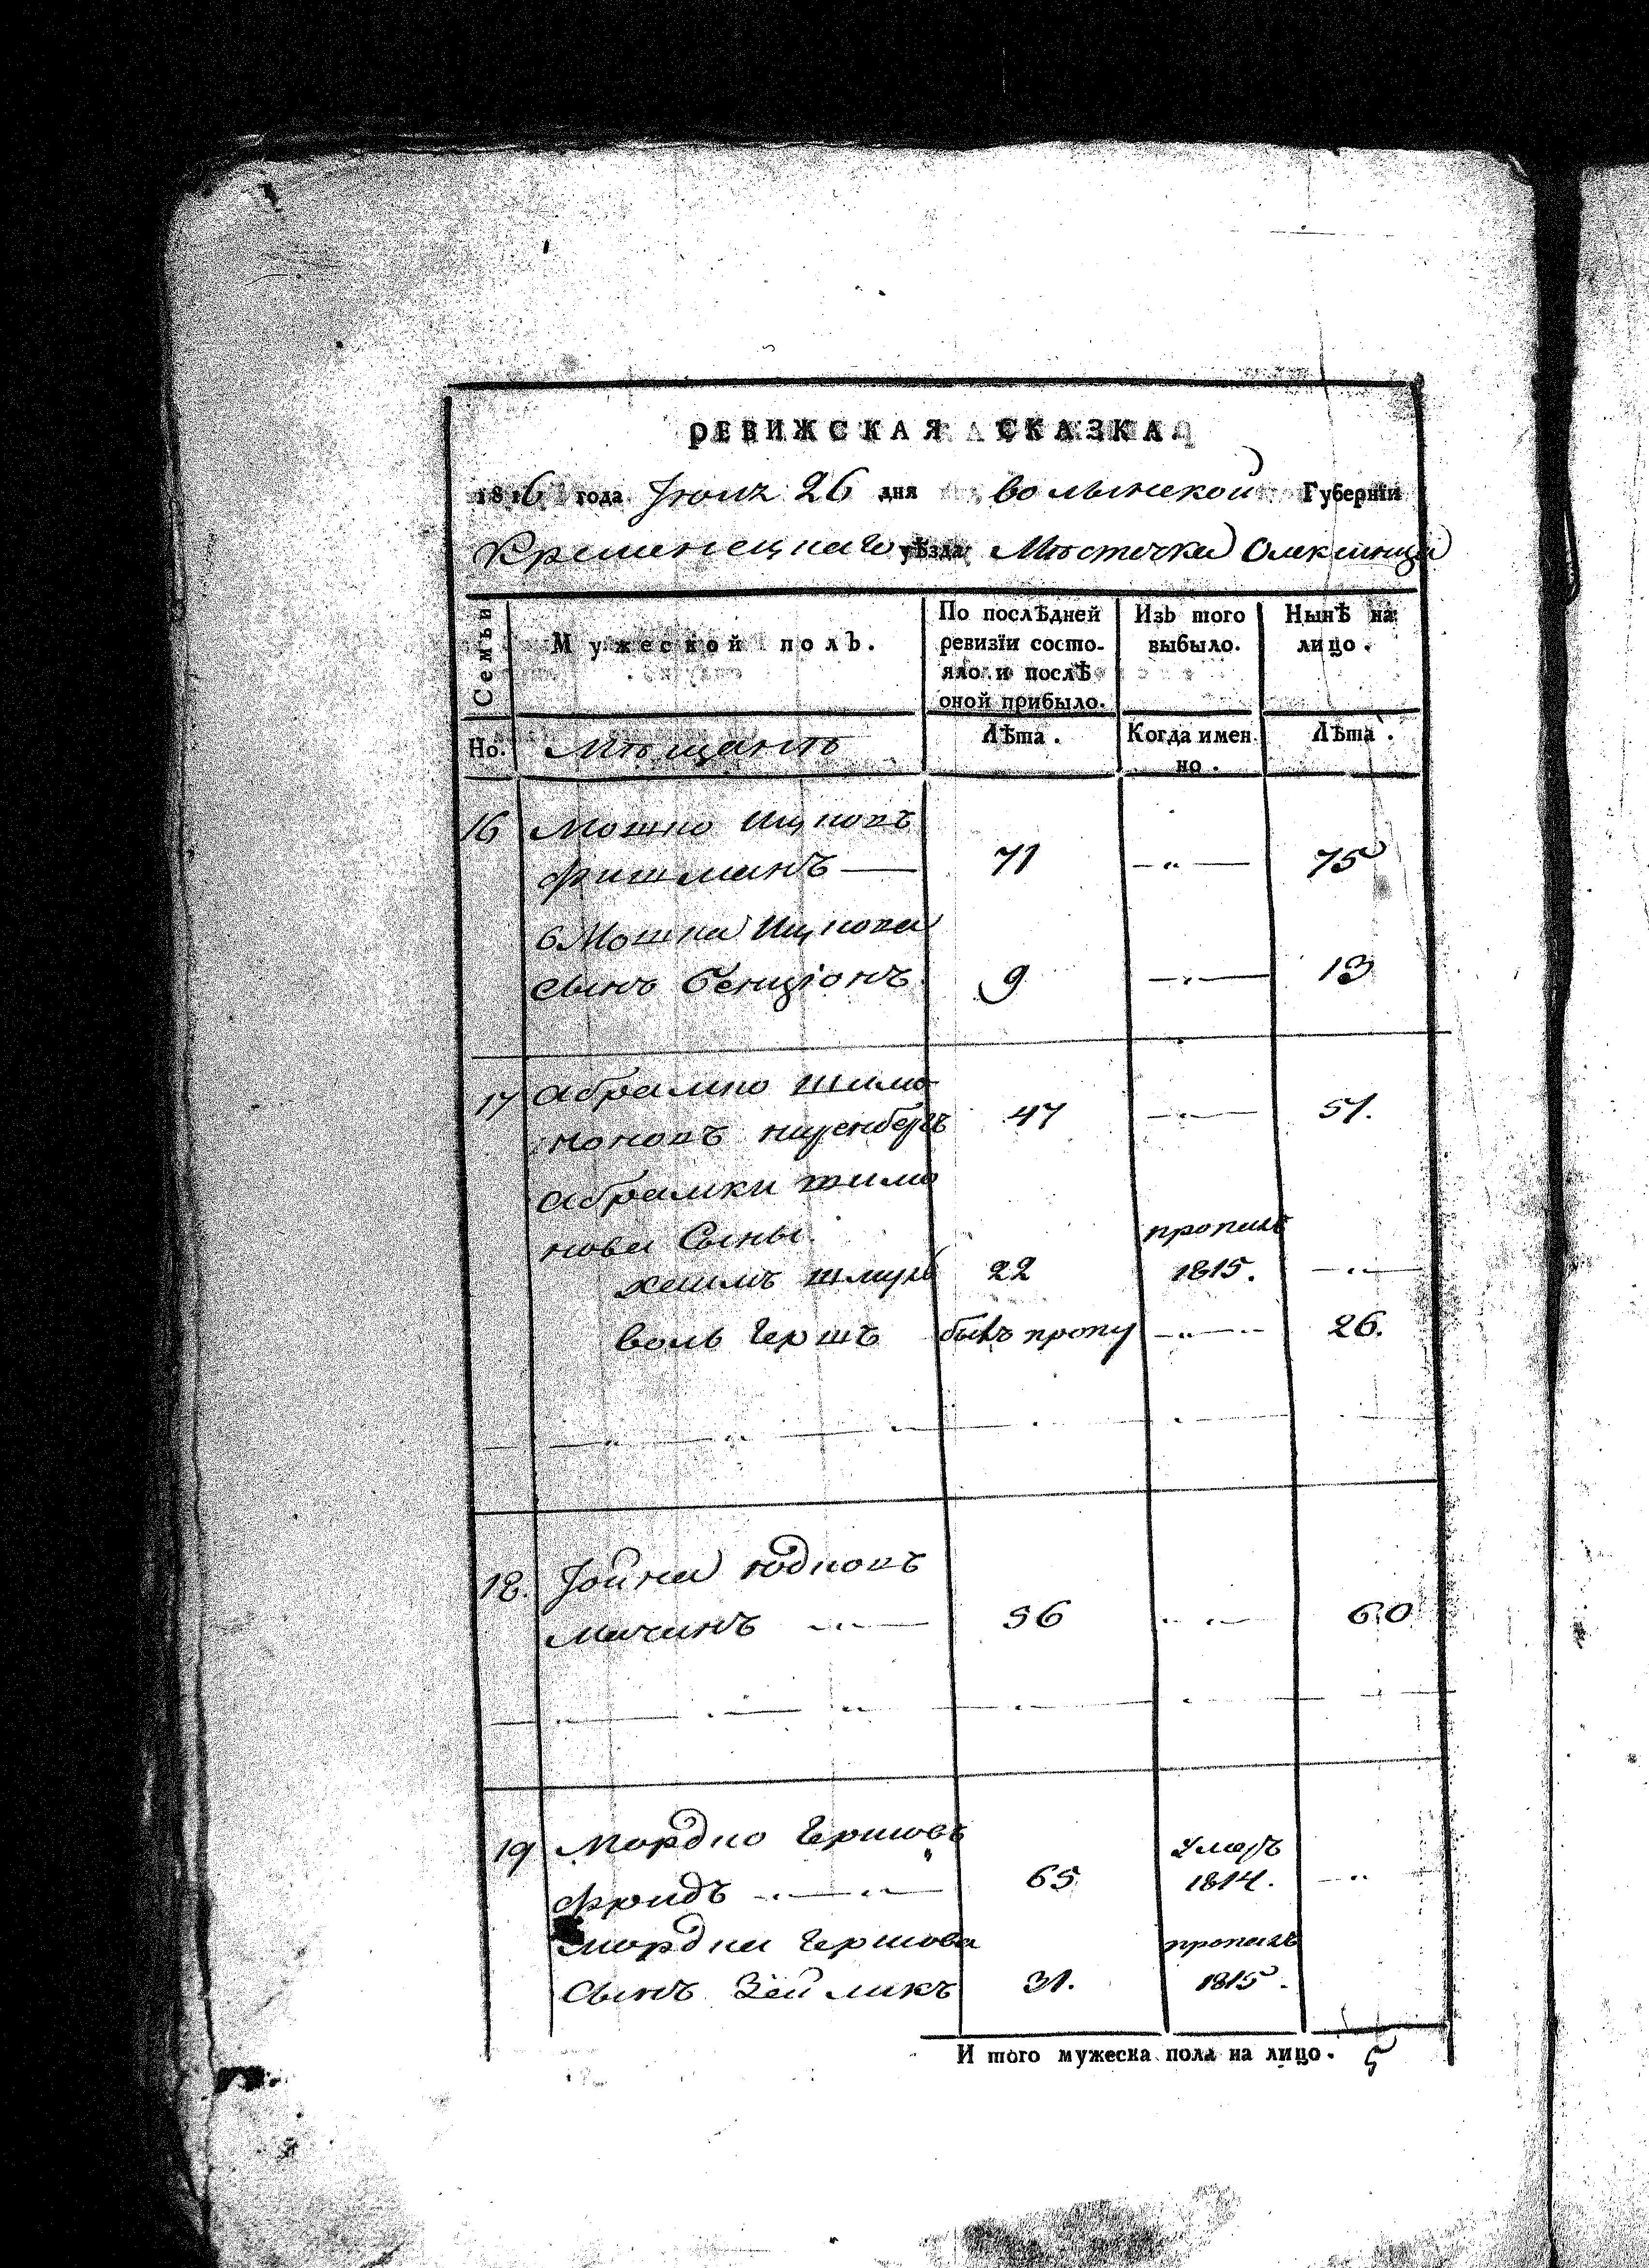 РЕВИЖСКАЯ СКАЗКА.
1816 года Іюня 26 дня волынской Губерніи
Кременецкаго уѣзда Мѣстечка Олексинца
Семьи
Мужеской полъ.
По послѣдней ревизіи состояло и послѣ оной прибыло.
Изъ того выбыло.
Нынѣ на лицо.
Но.
Мѣщанѣ
Лѣта.
Когда именно.
Лѣта.
16 Мошко Ицковъ
Фишманъ 71 75
Мошка Ицкова
сынъ бенціонъ 9 13
17 абрамко шимо
новъ 47 51.
абрамки шимо
нова Сыны
хаимъ шмуль 22 пропалъ 1815.
воль Гершъ былъ пропу 26.
18. Іойна юдковъ
мачинъ 56 60
19 Мордко Гершовъ
Фридъ 65 умеръ 1814.
мордки Гершова
сынъ Зейликъ 31. пропалъ 1815.
И того мужеска пола на лицо. 5